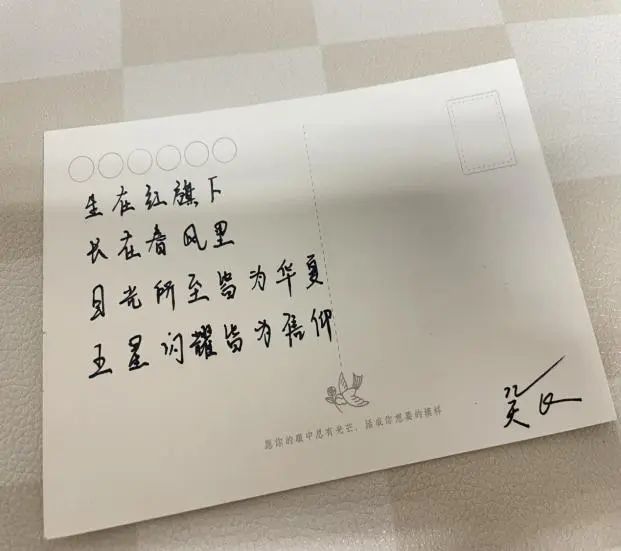 生在红旗下
长在春风里
目光所至皆为华夏
五星闪耀皆为信仰
愿你的眼中总有光芒，活成你想要的模样